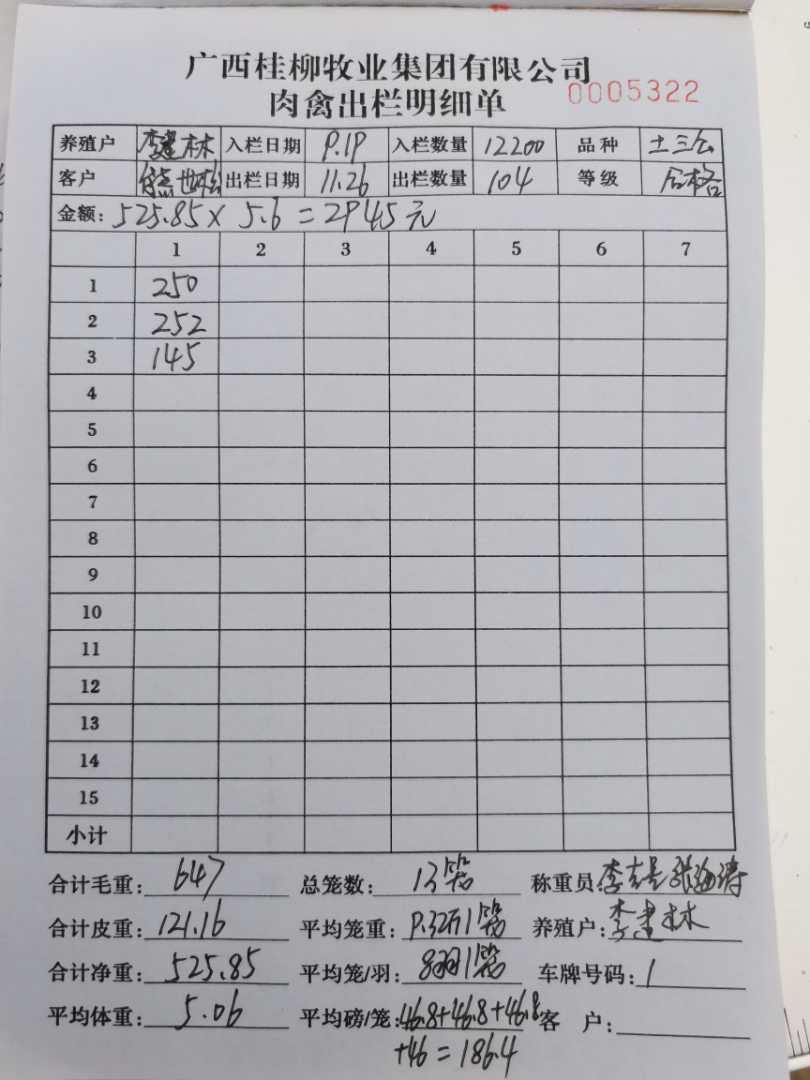 广西桂柳牧业集团有限公司
肉禽出栏明细单 0005322
养殖户 李建林 入栏日期 9.19 入栏数量 12200 品种 土三公
客户 熊世松 出栏日期 11.26 出栏数量 104 等级 合格
金额: 525.85 × 5.6 = 2945元
1 2 3 4 5 6 7
1 250
2 252
3 145
4
5
6
7
8
9
10
11
12
13
14
15
小计
合计毛重: 647 总笼数: 13笼 称重员:
合计皮重: 121.16 平均笼重: 9.32斤/笼 养殖户: 李建林
合计净重: 525.85 平均笼/羽: 8羽/笼 车牌号码: /
平均体重: 5.06 平均磅/笼: 46.8+46.8+46.8 客 户:
+46=186.4